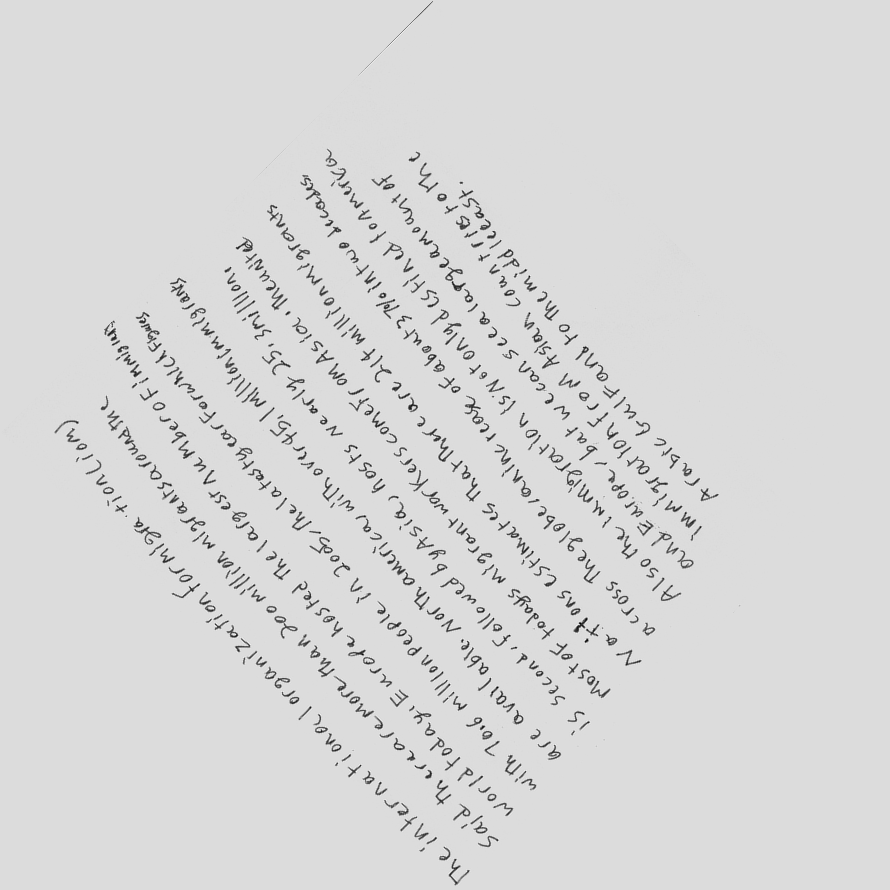 The international organization for migration (iom)
said there are more than 200 million migrants around the
world today, Europe hosted the largest number of immigrants
with 70.6 million people in 2005, the last year for which figures
are available. North america, with over 45.1 million immigrants
is second, followed by Asia, hosts nearly 25.3 million.
Most of todays migrant workers come from Asia, the united
Nations estimates that there are 214 million migrants
across the globe, an increase of about 37% in two decades
Also the immigration is Not only destined to America
and Europe, but we can see a large amount of
immigration from Asian countries to the
Arabic Gulf and to the middle east.